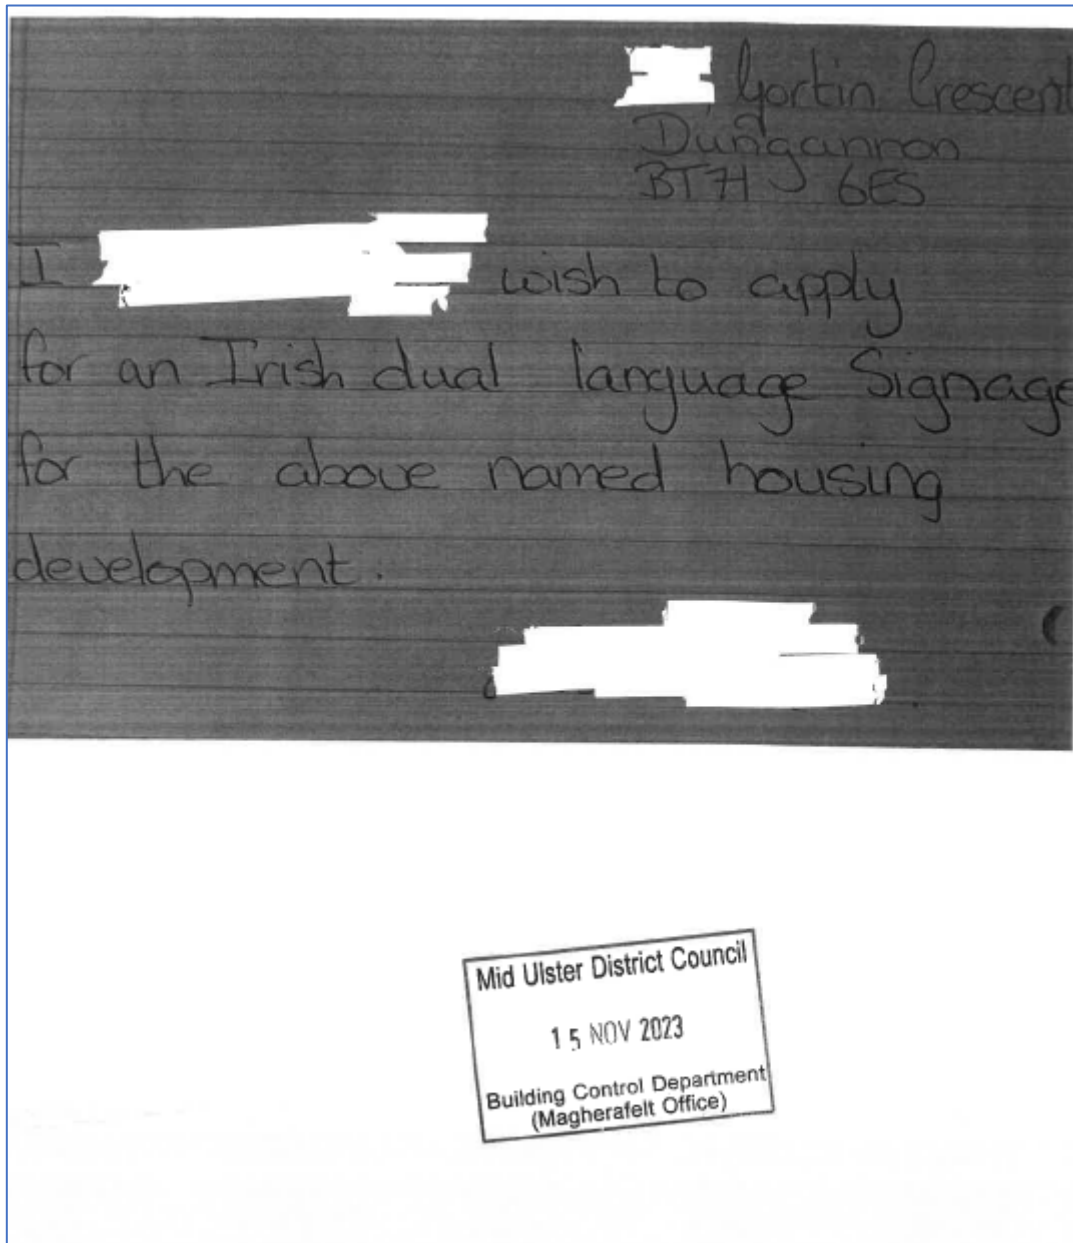 Gortin Crescent
Dungannon
BT71 6ES
I wish to apply
for an Irish dual language Signage
for the above named housing
development.
Mid Ulster District Council
15 NOV 2023
Building Control Department
(Magherafelt Office)